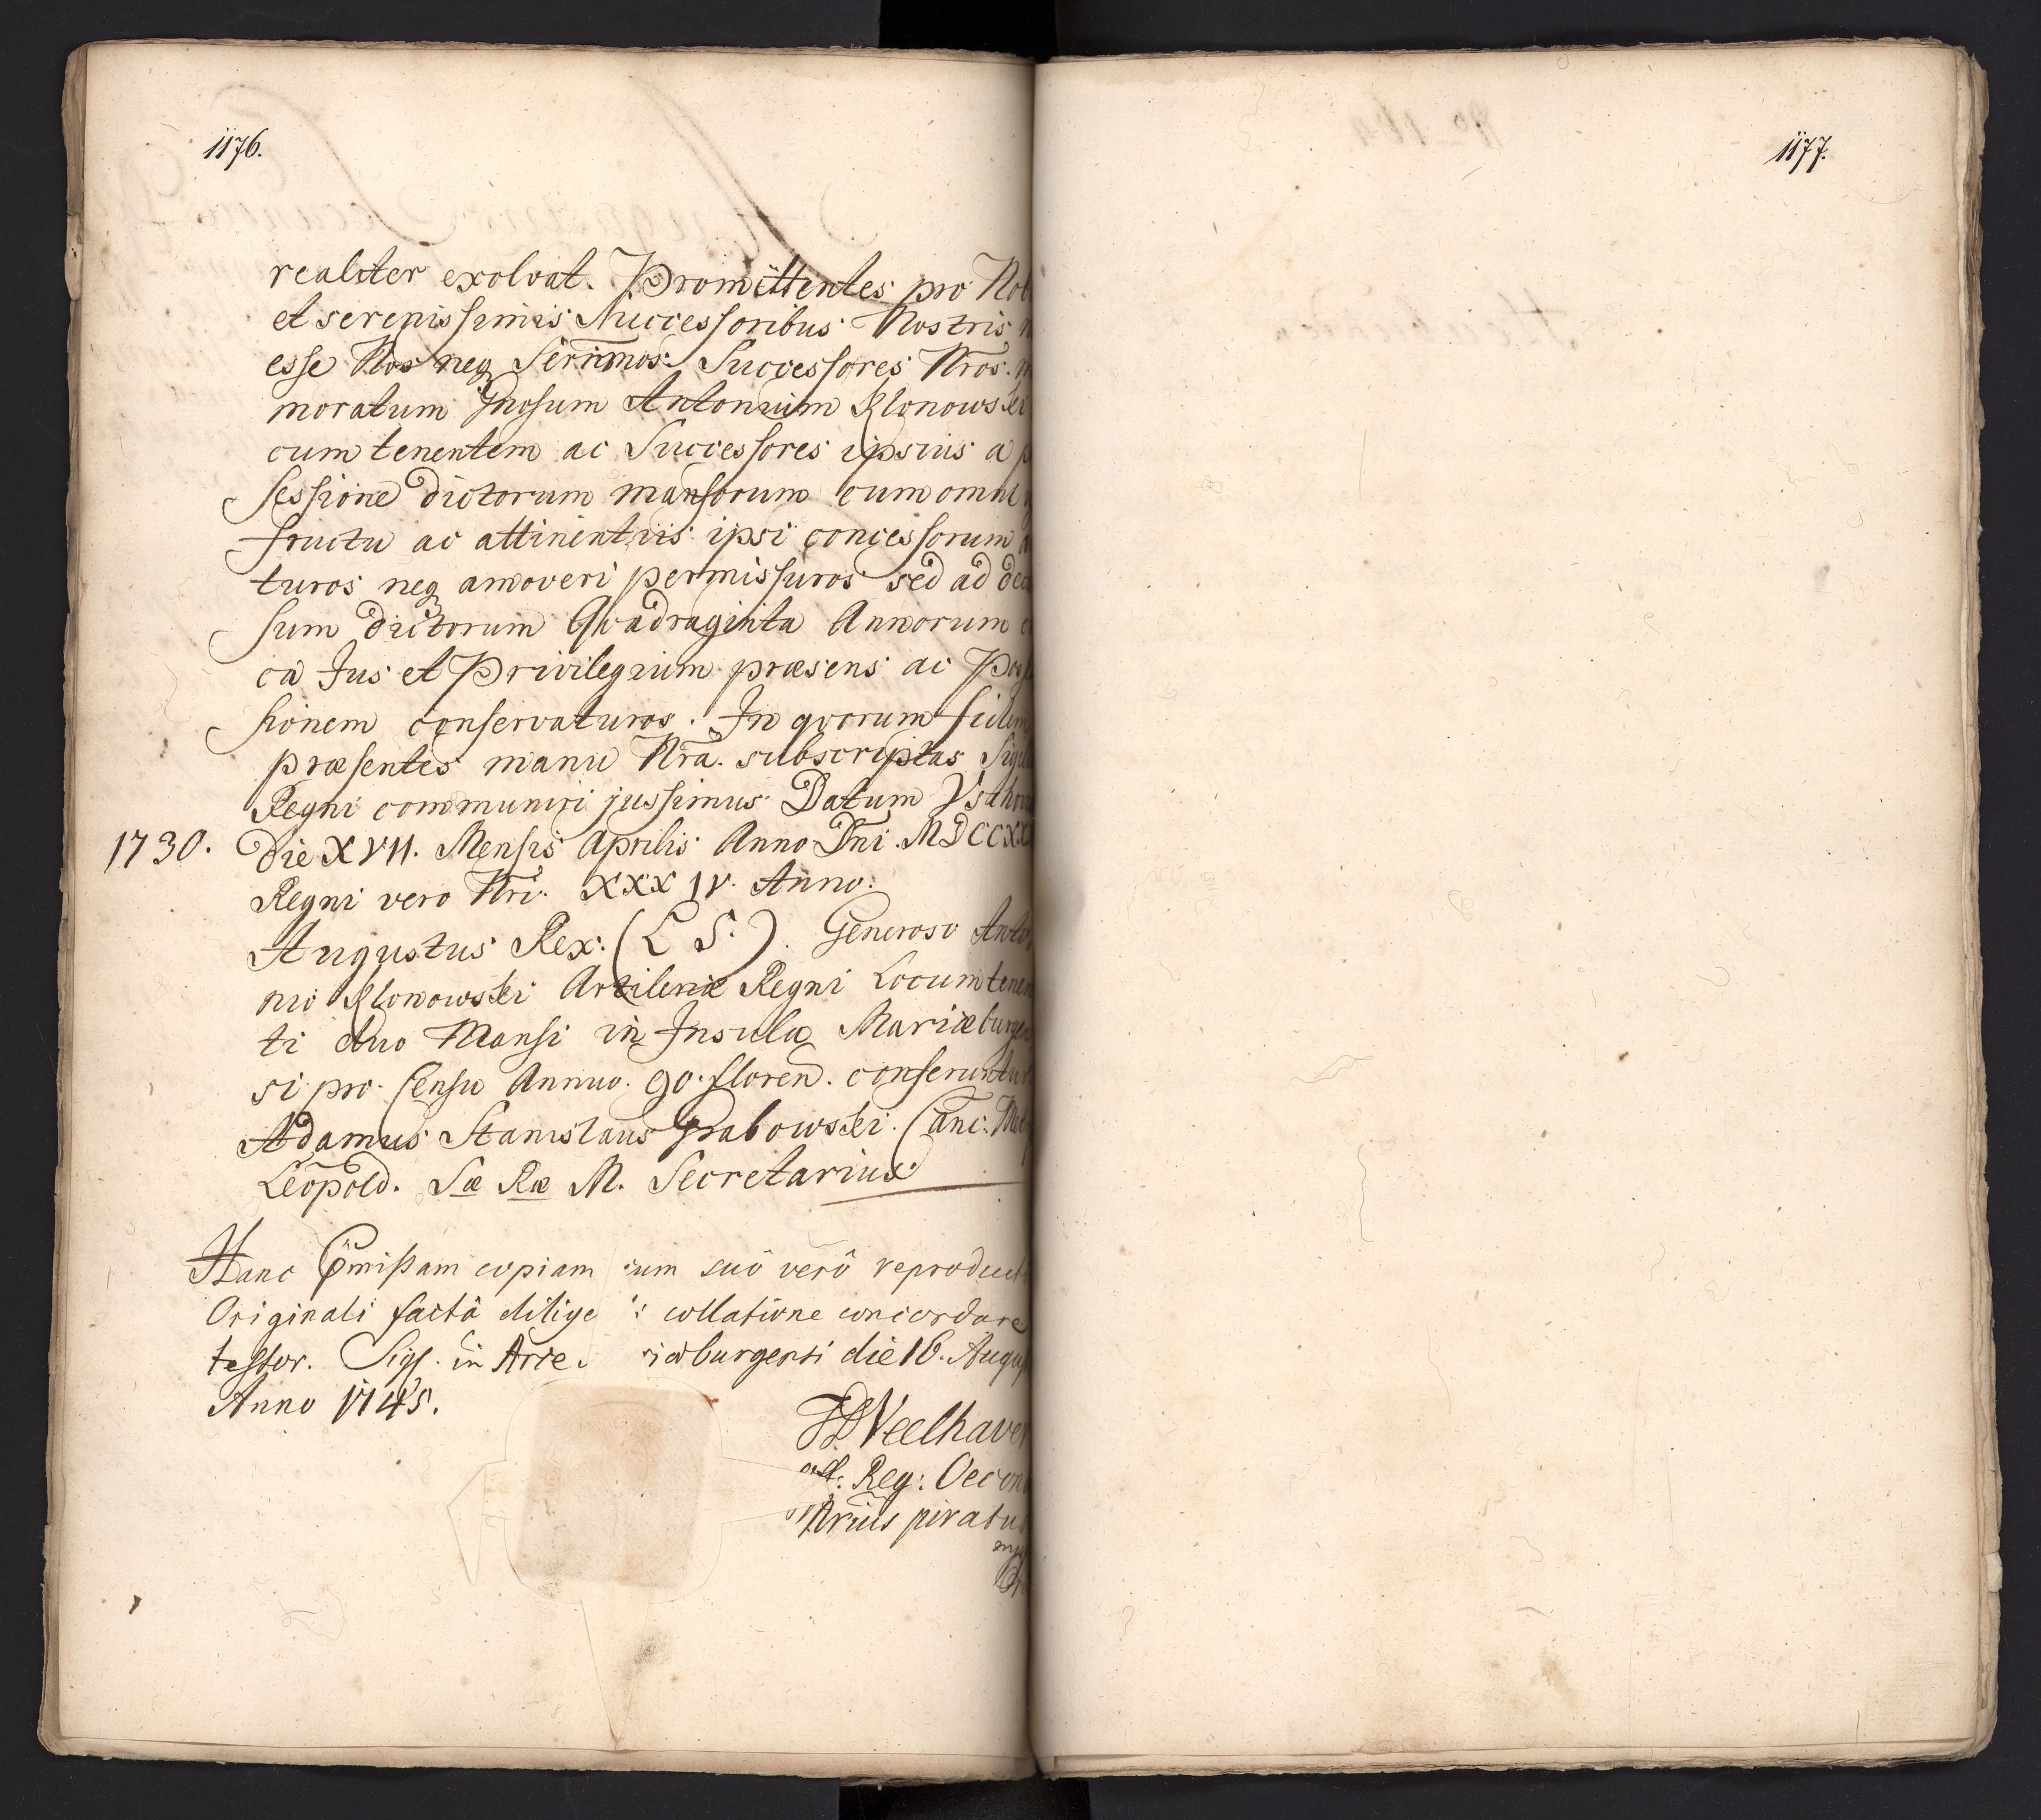 1176.
realiter exolvat. Promittentes pro Nob
et serenissimis Successoribus Nostris n
esse Nos neq Serrimos. Successores Nros.
moratum Gnosum Antonium Klonowski
cum tenentem ac Successores ipsius a p
sessione dictorum mansorum cum omni
fructu ac attinentiis ipsi concessorum a
turos neq amoveri permissuros sed ad dec
sum dictorum Quadraginta Annorum c
ca Jus et Privilegium præsens ac Poss
sionem conservaturos. In qvorum fidem
præsentes manu Nra. subscriptas Sigill
Regni communiri jussimus Datum Vscho
1730. Die XVII. Mensis Aprilis Anno Dni. MDCCXX
Regni vero Nri. XXXIV. Anno.
Augustus Rex. (L S.). Generoso Anto
nio Klonowski Artileriæ Regni Locumtenen
ti duo Mansi in Insula Mariæburgen
si pro Censu Annuo. 90. floren. conferuntur
Adamus Stanislaus Grabowski. Canc. Met
Leopold. Sæ Ræ M. Secretarius
Hanc pmißam copiam cum suô verô reproduct
Originali factâ dilige collatione concordare
testor. Sigf. in Arce riæburgensi die 16. Augus
Anno 1745.
Veelhaver
Reg: Oecon
Nrius juratus
1177.